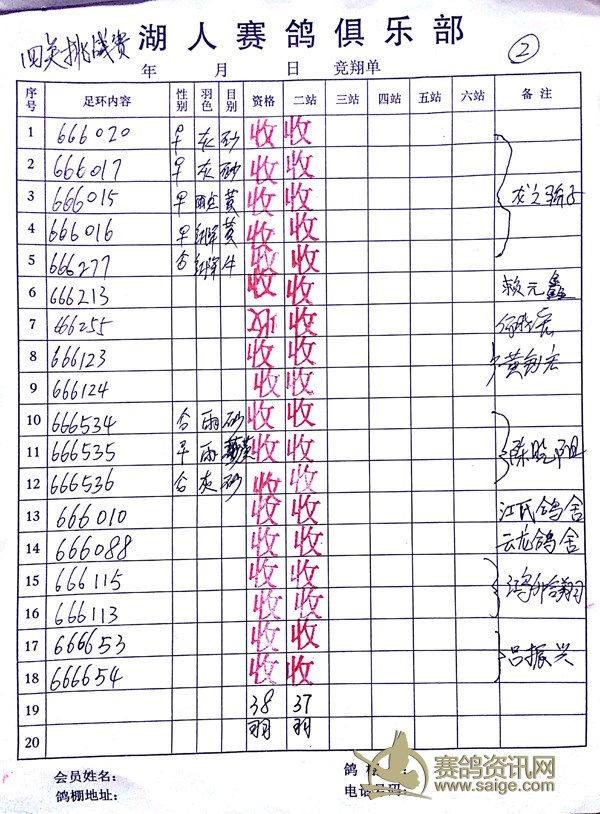 四关挑战费 湖人赛鸽俱乐部
年 月 日 竞翔单 ②
序号 足环内容 性别 羽色 目别 资格 二站 三站 四站 五站 六站 备注
1 666020 灰 砂 收 收
2 666017 灰 砂 收 收
3 666015 雨点 黄 收 收 龙之骄子
4 666016 黄 收 收
5 666277 牛 收 收
6 666213 收 收 赖元鑫
7 666255 收 收
8 666123 收 收
9 666124 收 收
10 666534 雨 砂 收 收
11 666535 雨 黄 收 收 陈晓阳
12 666536 灰 砂 收 收
13 666010 收 收 江氏鸽舍
14 666088 收 收 云龙鸽舍
15 666115 收 收
16 666113 收 收
17 666653 收 收 吕振兴
18 666654 收 收
19 38 37
20 羽 羽
会员姓名: 鸽
鸽棚地址: 电话号码:
赛鸽资讯网
www.saige.com